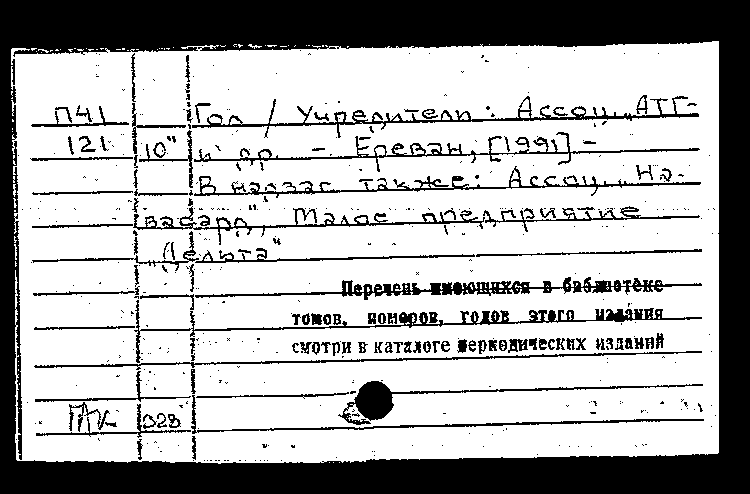 П41 Гол / Учредители: Ассоц. „АТГ-
121 10" и др. - Ереван, [1991] -
В надзаг также: Ассоц. „На-
васард", Малое предприятие
„Дельта"
Перечень имеющихся в библиотеке
томов, номеров, годов этого издания
смотри в каталоге периодических изданий
328